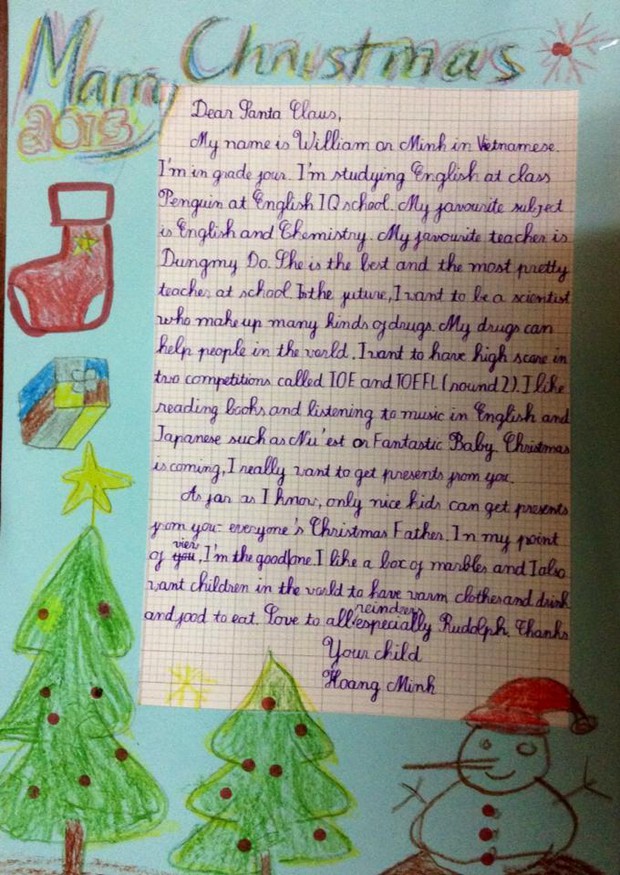 Marry Christmas
2015
Dear Santa Claus,
My name is William or Minh in Vietnamese.
I'm in grade four. I'm studying English at class
Penguin at English IQ school. My favourite subject
is English and Chemistry. My favourite teacher is
Dungmy Do. She is the best and the most pretty
teacher at school. In the future, I want to be a scientist
who make up many kinds of drugs. My drugs can
help people in the world. I want to have high score in
two competitions called IOE and TOEFL (round 2). I like
reading books and listening to music in English and
Japanese such as Nu'est or Fantastic Baby. Christmas
is coming, I really want to get presents from you.
As far as I know, only nice kids can get presents
from you - everyone's Christmas Father. In my point
of view, I'm the good one. I like a box of marbles and I also
want children in the world to have warm clothes and drink
and food to eat. Love to all reindeer especially Rudolph. Thanks
Your child
Hoang Minh